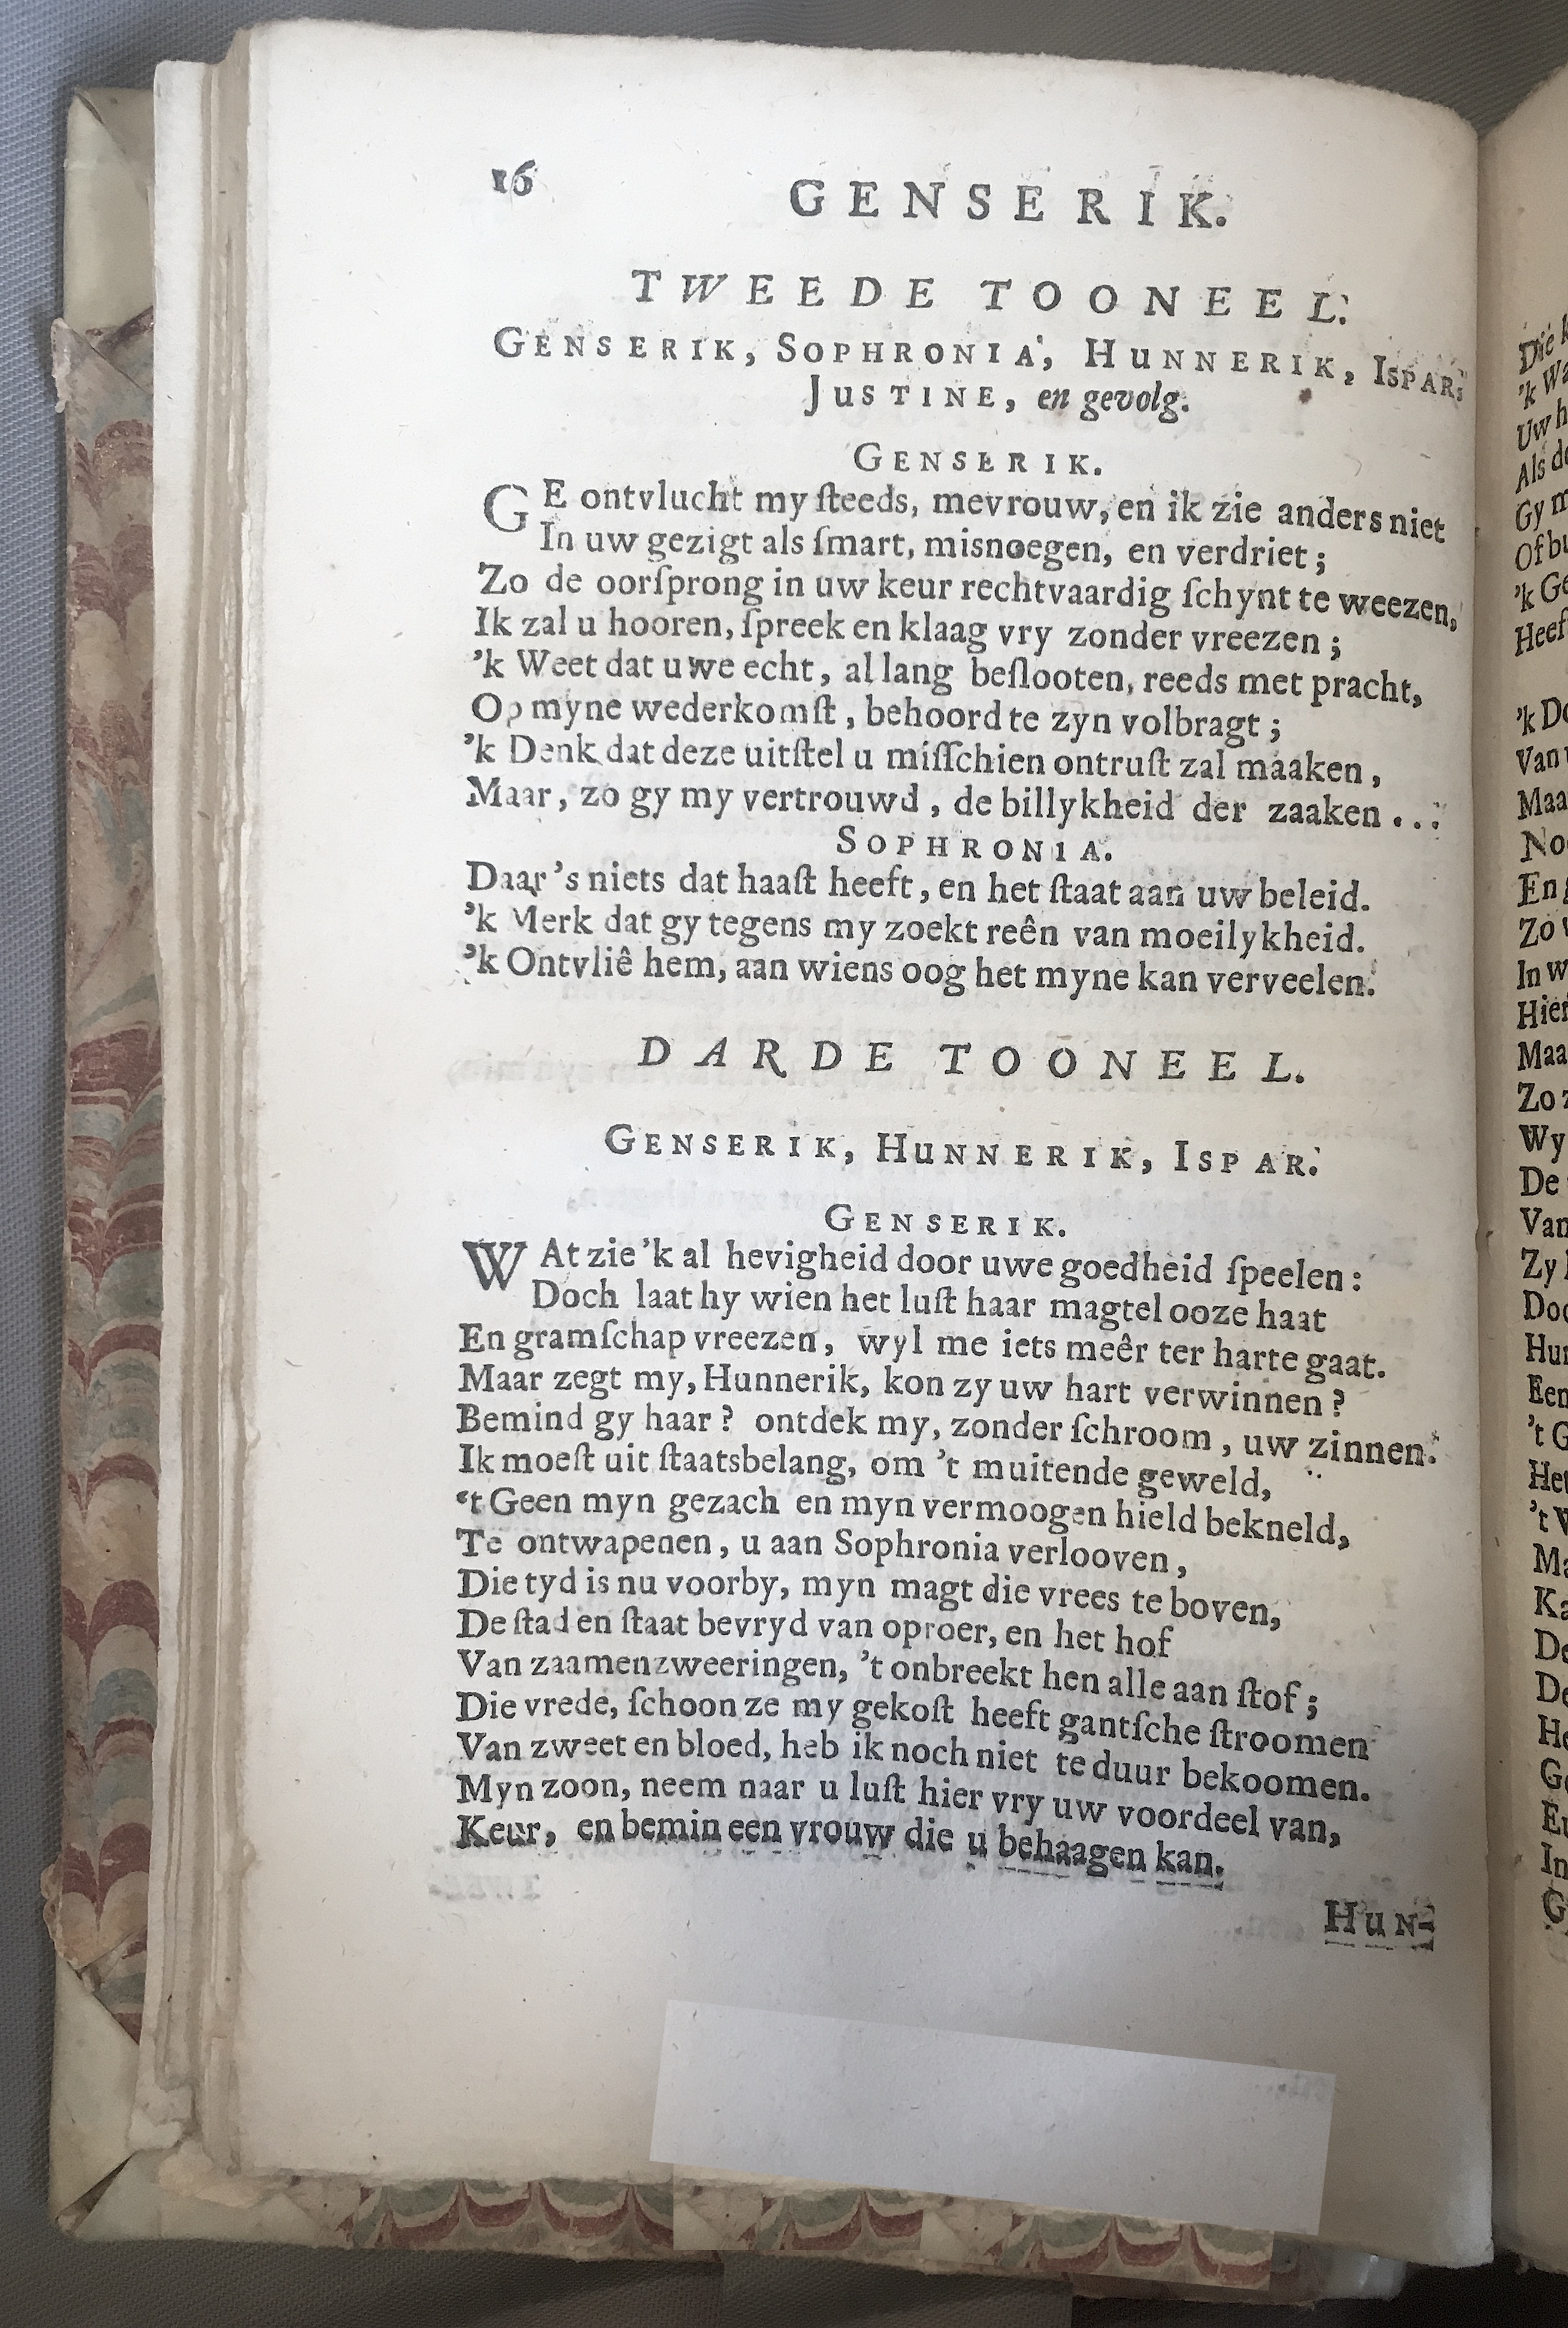 16
GENSERIK.
TWEEDE TOONEEL.
GENSERIK, SOPHRONIA, HUNNERIK, ISPAR,
JUSTINE, en gevolg.
GENSERIK.
GE ontvlucht my ſteeds, mevrouw, en ik zie anders niet
In uw gezigt als ſmart, misnoegen, en verdriet;
Zo de oorſprong in uw keur rechtvaardig ſchynt te weezen,
Ik zal u hooren, ſpreek en klaag vry zonder vreezen;
'k Weet dat uwe echt, al lang beſlooten, reeds met pracht,
Op myne wederkomſt, behoord te zyn volbragt;
'k Denk dat deze uitſtel u miſſchien ontruſt zal maaken,
Maar, zo gy my vertrouwd, de billykheid der zaaken...
SOPHRONIA.
Daar's niets dat haaſt heeft, en het ſtaat aan uw beleid.
'k Merk dat gy tegens my zoekt reên van moeilykheid.
'k Ontvliê hem, aan wiens oog het myne kan verveelen.
DARDE TOONEEL.
GENSERIK, HUNNERIK, ISPAR.
GENSERIK.
WAt zie'k al hevigheid door uwe goedheid ſpeelen:
Doch laat hy wien het luſt haar magtelooze haat
En gramſchap vreezen, wyl me iets meêr ter harte gaat.
Maar zegt my, Hunnerik, kon zy uw hart verwinnen?
Bemind gy haar? ontdek my, zonder ſchroom, uw zinnen.
Ik moeſt uit ſtaatsbelang, om 't muitende geweld,
't Geen myn gezach en myn vermoogen hield bekneld,
Te ontwapenen, u aan Sophronia verlooven,
Die tyd is nu voorby, myn magt die vrees te boven,
De ſtad en ſtaat bevryd van oproer, en het hof
Van zaamenzweeringen, 't onbreekt hen alle aan ſtof;
Die vrede, ſchoon ze my gekoſt heeft gantſche ſtroomen
Van zweet en bloed, heb ik noch niet te duur bekoomen.
Myn zoon, neem naar u luſt hier vry uw voordeel van,
Keur, en bemin een vrouw die u behaagen kan.
HUN-
Die
'k Wa
Uw h
Als de
Gy m
Of bu
'k Ge
Heef
'k Do
Van
Maa
No
En
Zo
In w
Hier
Maa
Zo z
Wy
De
Van
Zy
Doc
Hun
Een
't G
Het
't
Ma
Ka
De
De
He
Ge
En
In
G